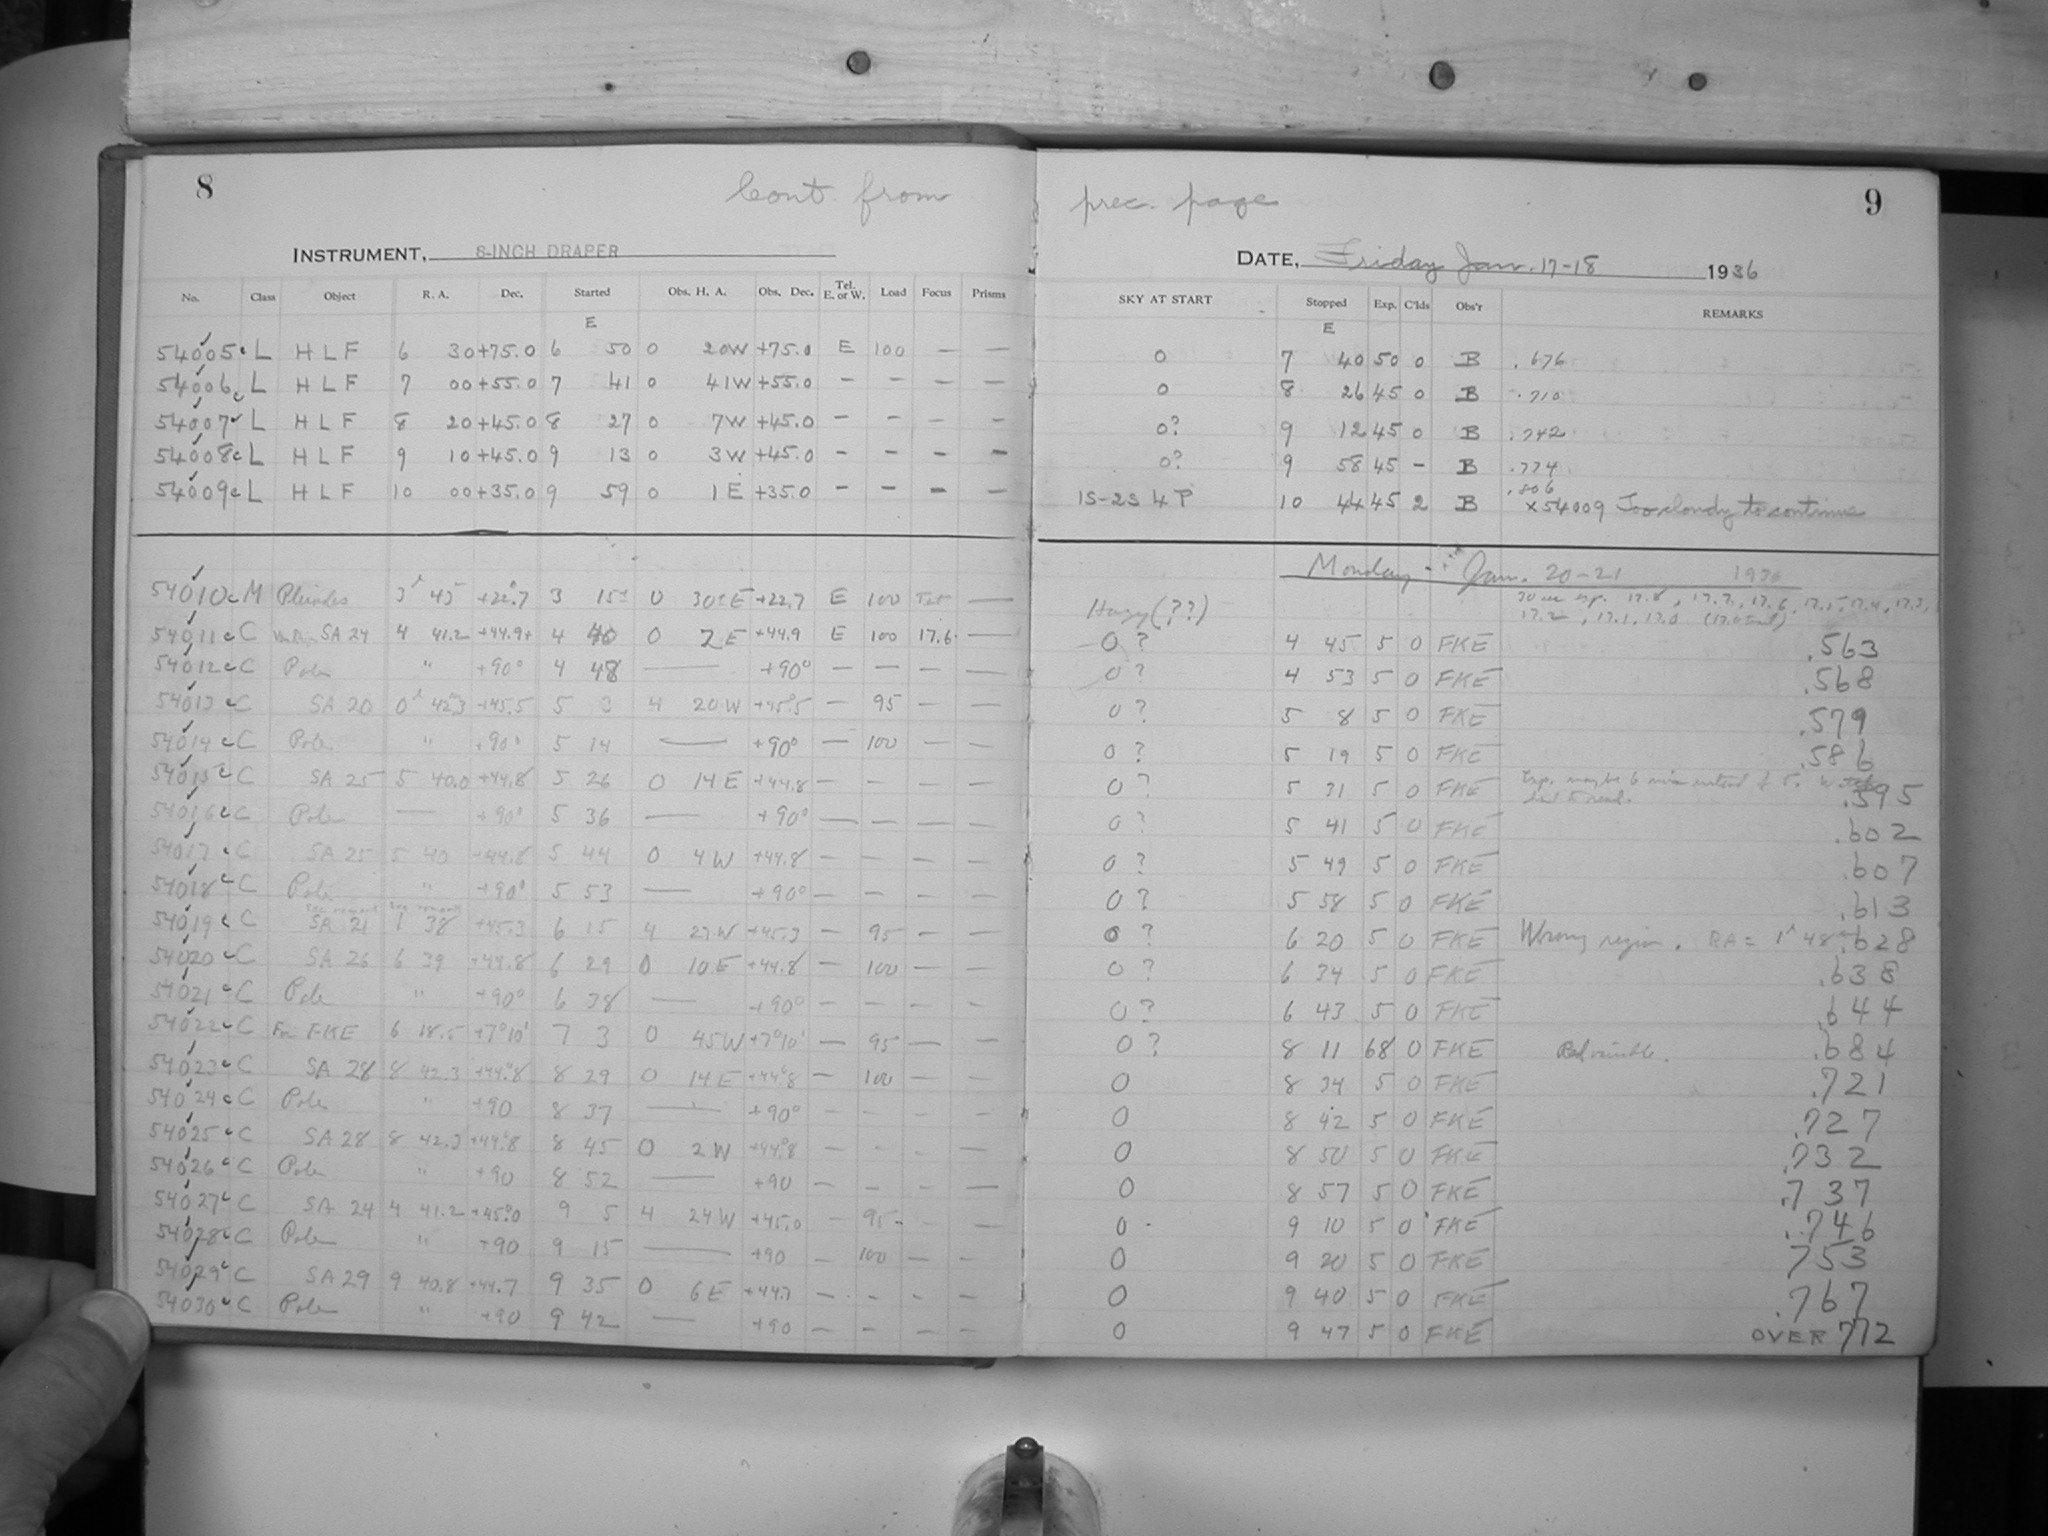 8
Cont. from
prec. page
9
INSTRUMENT, 8-INCH DRAPER
DATE, Friday Jan. 17-18 1936
No. Class Object R. A. Dec. Started Obs. H. A. Obs. Dec. Tel. E. or W. Load Focus Prisms SKY AT START Stopped Exp. C'lds Obs'r REMARKS
E E
54005 L H L F 6 30 +75.0 6 50 0 20W +75.0 E 100 — — 0 7 40 50 0 B .676
54006 L H L F 7 00 +55.0 7 41 0 41W +55.0 — — — — 0 8 26 45 0 B .710
54007 L H L F 8 20 +45.0 8 27 0 7W +45.0 — — — — 0? 9 12 45 0 B .742
54008 L H L F 9 10 +45.0 9 13 0 3W +45.0 — — — — 0? 9 58 45 — B .774
54009 L H L F 10 00 +35.0 9 59 0 1E +35.0 — — — — 1S-2S 4 P 10 44 45 2 B .806
x 54009 Too cloudy to continue
Monday Jan. 20-21 1936
54010 M Pleiades 3 45 +22.7 3 15± 0 30±E +22.7 E 100 Tet — Hazy (??) 30 sec exp. 17.8, 17.7, 17.6, 17.5, 17.4, 17.3,
17.2, 17.1, 17.0
54011 C SA 24 4 41.2 +44.9+ 4 40 0 2E +44.9 E 100 17.6 — 0? 4 45 5 0 FKE .563
54012 C Pole " +90° 4 48 — +90° — — — — 0? 4 53 5 0 FKE .568
54013 C SA 20 0 42.3 +45.5 5 3 4 20W +45.5 — 95 — — 0? 5 8 5 0 FKE .579
54014 C Pole " +90° 5 14 — +90° — 100 — — 0? 5 19 5 0 FKE .586
54015 C SA 25 5 40.0 +44.8 5 26 0 14E +44.8 — — — — 0? 5 31 5 0 FKE Exp. may be 6 min instead of 5. Watch .595
hard to read.
54016 C Pole — +90° 5 36 — +90° — — — — 0? 5 41 5 0 FKE .602
54017 C SA 25 5 40 +44.8 5 44 0 4W +44.8 — — — — 0? 5 49 5 0 FKE .607
54018 C Pole " +90° 5 53 — +90° — — — — 0? 5 58 5 0 FKE .613
See remark See remark
54019 C SA 21 1 38 +45.3 6 15 4 27W +45.3 — 95 — — 0? 6 20 5 0 FKE Wrong region. RA = 1 48 .628
54020 C SA 26 6 39 +44.8 6 29 0 10E +44.8 — 100 — — 0? 6 34 5 0 FKE .638
54021 C Pole " +90° 6 38 — +90° — — — — 0? 6 43 5 0 FKE .644
54022 C For FKE 6 18.5 +7°10' 7 3 0 45W +7°10' — 95 — — 0? 8 11 68 0 FKE Red variable. .684
54023 C SA 28 8 42.3 +44.8 8 29 0 14E +44.8 — 100 — — 0 8 34 5 0 FKE .721
54024 C Pole " +90 8 37 — +90° — — — — 0 8 42 5 0 FKE .727
54025 C SA 28 8 42.3 +44.8 8 45 0 2W +44.8 — — — — 0 8 50 5 0 FKE .732
54026 C Pole " +90 8 52 — +90 — — — — 0 8 57 5 0 FKE .737
54027 C SA 24 4 41.2 +45.0 9 5 4 24W +45.0 — 95 — — 0 9 10 5 0 FKE .746
54028 C Pole " +90 9 15 — +90 — 100 — — 0 9 20 5 0 FKE .753
54029 C SA 29 9 40.8 +44.7 9 35 0 6E +44.7 — — — — 0 9 40 5 0 FKE .767
54030 C Pole " +90 9 42 — +90 — — — — 0 9 47 5 0 FKE OVER 772